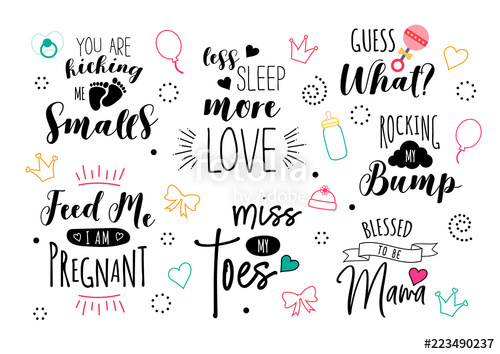 YOU ARE
kicking
ME
Smalls
less
SLEEP
more
LOVE
GUESS
What?
ROCKING
MY
Bump
Feed Me
I AM
PREGNANT
miss
MY
Toes
BLESSED
TO BE
Mama
fotolia
by Adobe
#223490237